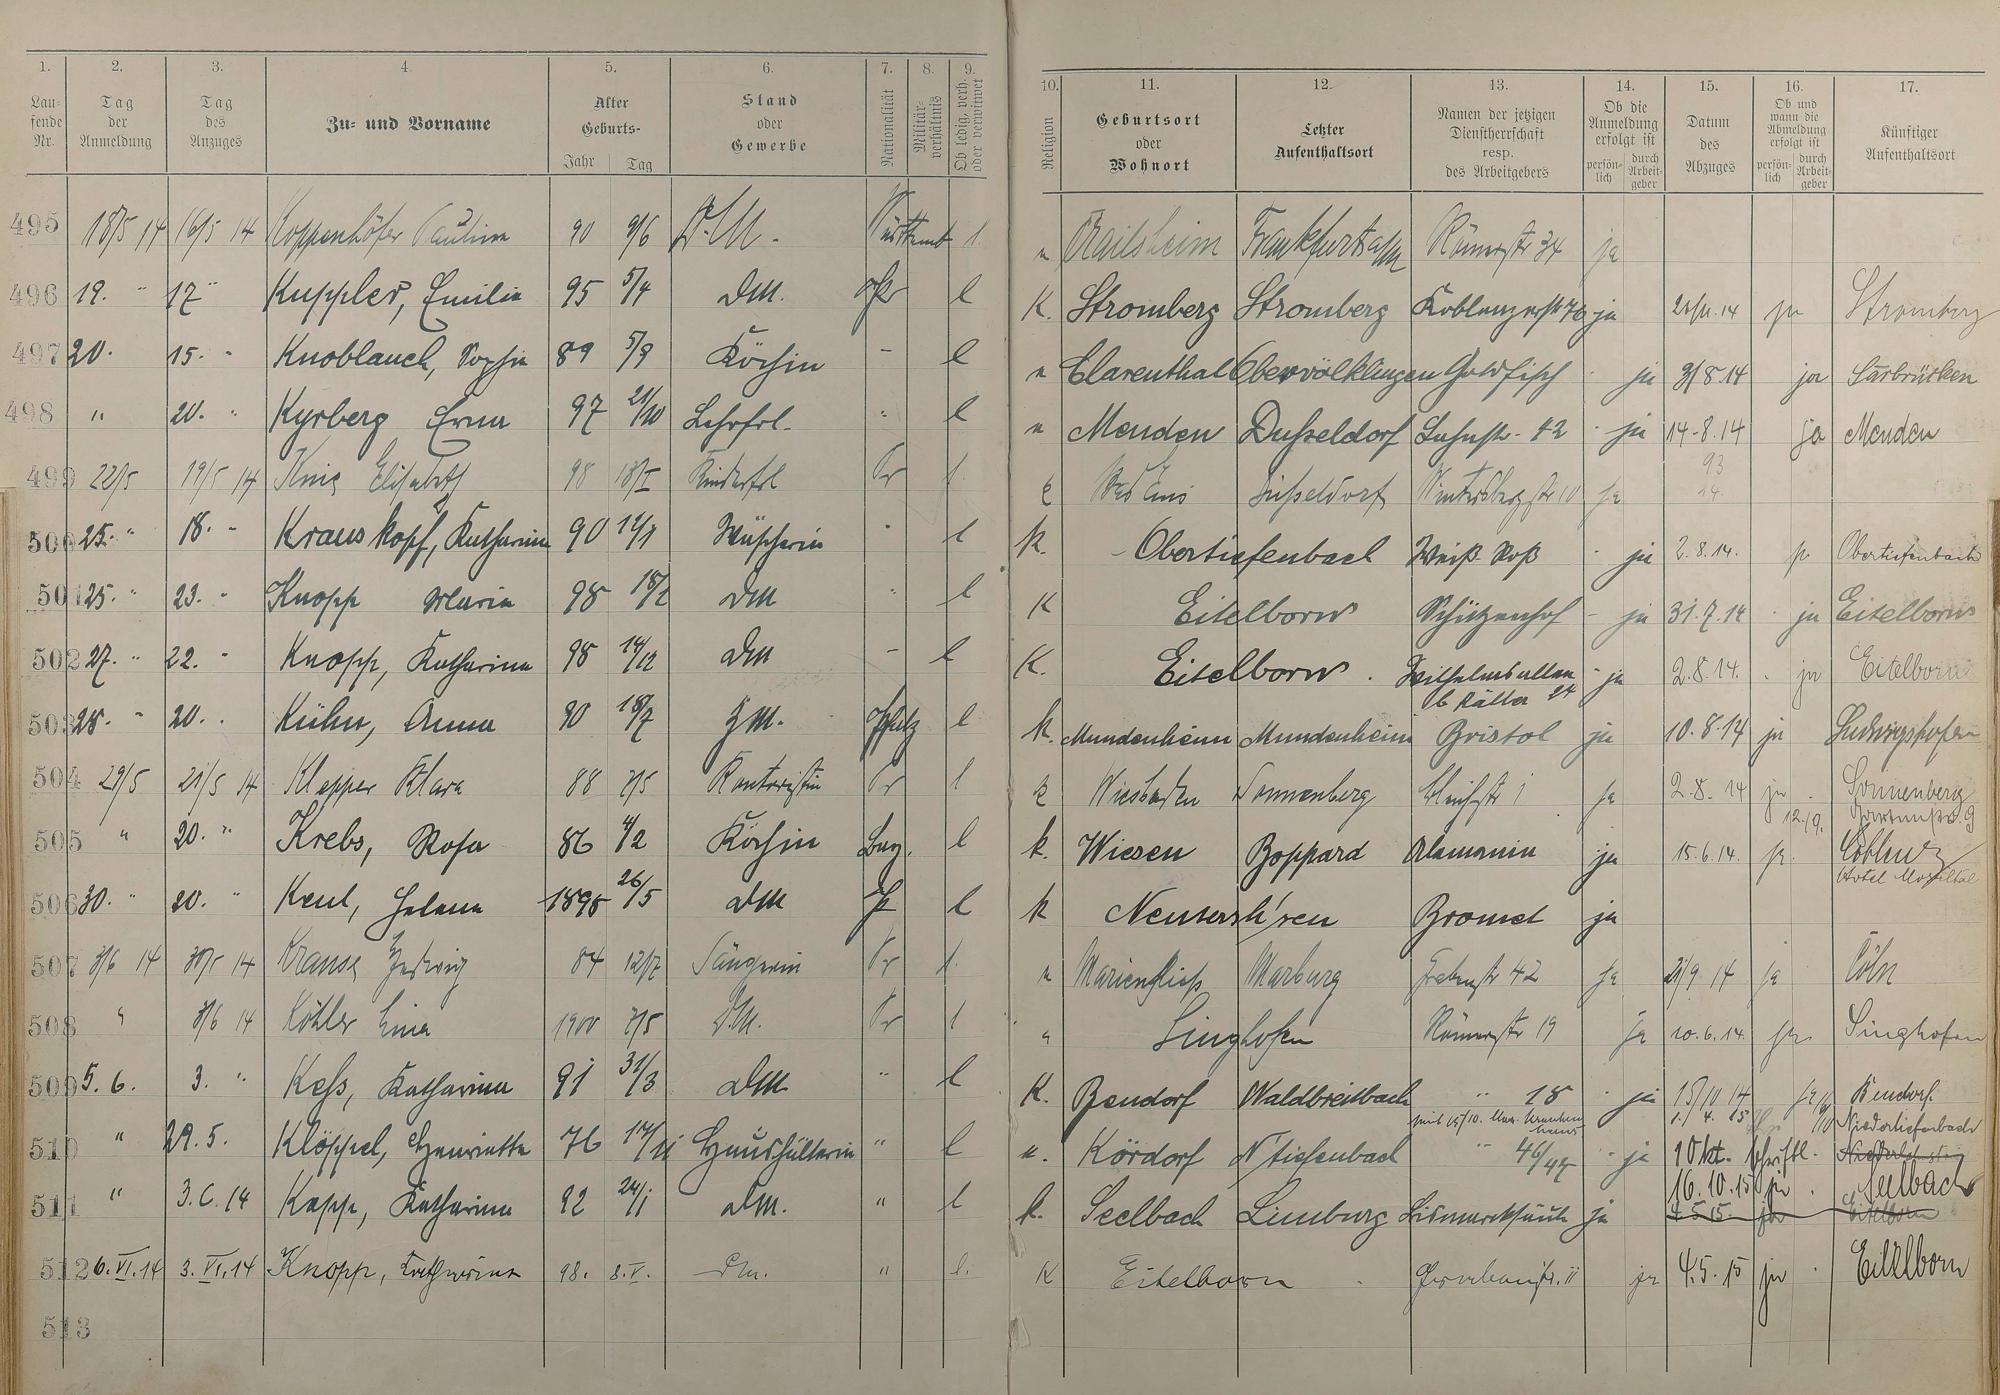 1. 2. 3. 4. 5. 6. 7. 8. 9.
Laufende Nr. Tag der Anmeldung Tag des Anzuges Zu= und Vorname Alter Geburts- Jahr Tag Stand oder Gewerbe Nationalität Militärverhältnis Ob ledig, verh. oder verwitwet
10. 11. 12. 13. 14. 15. 16. 17.
Religion Geburtsort oder Wohnort Letzter Aufenthaltsort Namen der jetzigen Dienstherrschaft resp. des Arbeitgebers Ob die Anmeldung erfolgt ist persönlich durch Arbeitgeber Datum des Abzuges Ob und wann die Abmeldung erfolgt ist persönlich durch Arbeitgeber Künftiger Aufenthaltsort
495 18/5 14 16/5 14 Koppenhöfer Pauline 90 9/6 D.M. Württemb l. Frankfurt a/M Römerstr 34 ja
496 19. " 17 " Kuppler, Emilie 95 5/4 DM. Pr l K. Stromberg Stromberg Koblenzerstr 76 ja ja Stromberg
497 20. 15. " Knoblauch, Sophie 89 5/9 Köchin - l Clarenthal Obervölklingen Goldfisch ja 3/8.14 ja Sarbrücken
498 " 20. " Kyrberg Erna 97 21/10 Lehrfrl. " l Menden Dusseldorf Lahnstr. 42 ja 14.8.14 ja Menden
499 22/5 19/5 14 Elisabeth 98 Kinderfrl Pr l. Bad Ems Düsseldorf Wintersbergstr 10 ja
500 25. " 18. " Krauskopf, Katharina 90 Wäscherin " l K. - Obertiefenbach Weiß Roß ja 2.8.14. Obertiefenbach
501 25. " 23. " Knopp Maria 98 18/2 DM " l K Eitelborn Schützenhof - ja 31.7.14 ja Eitelborn
502 27. " 22. " Knopp, Katharina 98 14/12 DM - l K. Eitelborn Wilhelmsallee ja 2.8.14. ja Eitelborn
503 28. " 20. " Kühn, Anna 90 18/7 Pfalz l k. Mundenheim Mundenheim Bristol ja 10.8.14 ja Ludwigshafen
504 29/5 21/5 14 Klepper Klara 88 Kontoristin Pr l Wiesbaden Sonnenberg ja 2.8.14 ja Sonnenberg
12./9.
505 " 20. " Krebs, Rosa 86 4/2 Köchin Bay. l k. Wiesen Boppard Alemania ja 15.6.14. ja. Coblenz
Hotel Moseltal
506 30. " 20. " Keul, Helena 1895 26/5 DM Pr l k Bromet ja
507 Krause Hedwig 84 12/7 Sängerin Pr l. Marienfliess Marburg Grabenstr 42 ja 21/9 14 ja Cöln
508 " 14 Köhler Lina 1900 D.M. Pr l " Singhofen Römerstr 19 ja 10.6.14. ja. Singhofen
509 5.6. 3. " Keß, Katharina 91 31/3 DM " l K. Bendorf Waldbreitbach " 18 ja 15/10 14 Bendorf
Niedertiefenbach
510 " 29.5. Klöppel, Henriette 76 Haushälterin " l Kördorf N'tiefenbach " 46/47 ja 1 Okt. schriftl.
511 " 3.6.14 Kapp, Katharina 92 24/1 DM. " l k. Seelbach Limburg Bismarcksäule ja 16.10.15 ja Seelbach
4.5.15. ja Eitelborn
512 6.VI.14 3.VI.14 Knopp, Katharina 98. 8.V. DM. " l. K Eitelborn ja 4.5.15 ja Eitelborn
513